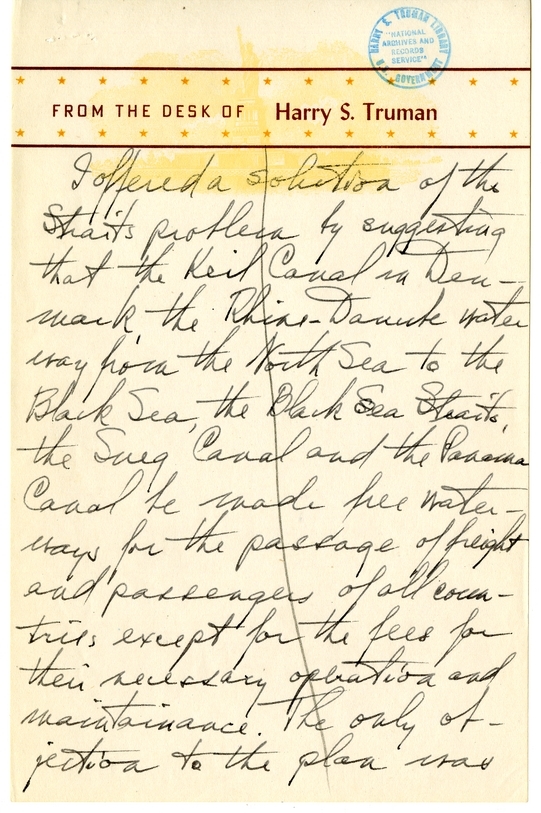 HARRY S. TRUMAN LIBRARY
"NATIONAL
ARCHIVES AND
RECORDS
SERVICE"
U.S. GOVERNMENT
FROM THE DESK OF Harry S. Truman
I offered a solution of the
Straits problem by suggesting
that the Keil Canal in Den-
mark the Rhine-Danube water
way from the North Sea to the
Black Sea, the Black Sea Straits,
the Sueg Canal and the Panama
Canal be made free water-
ways for the passage of freight
and passengers of all coun-
tries except for the fees for
their necessary operation and
maintainance. The only ob-
jection to the plan was